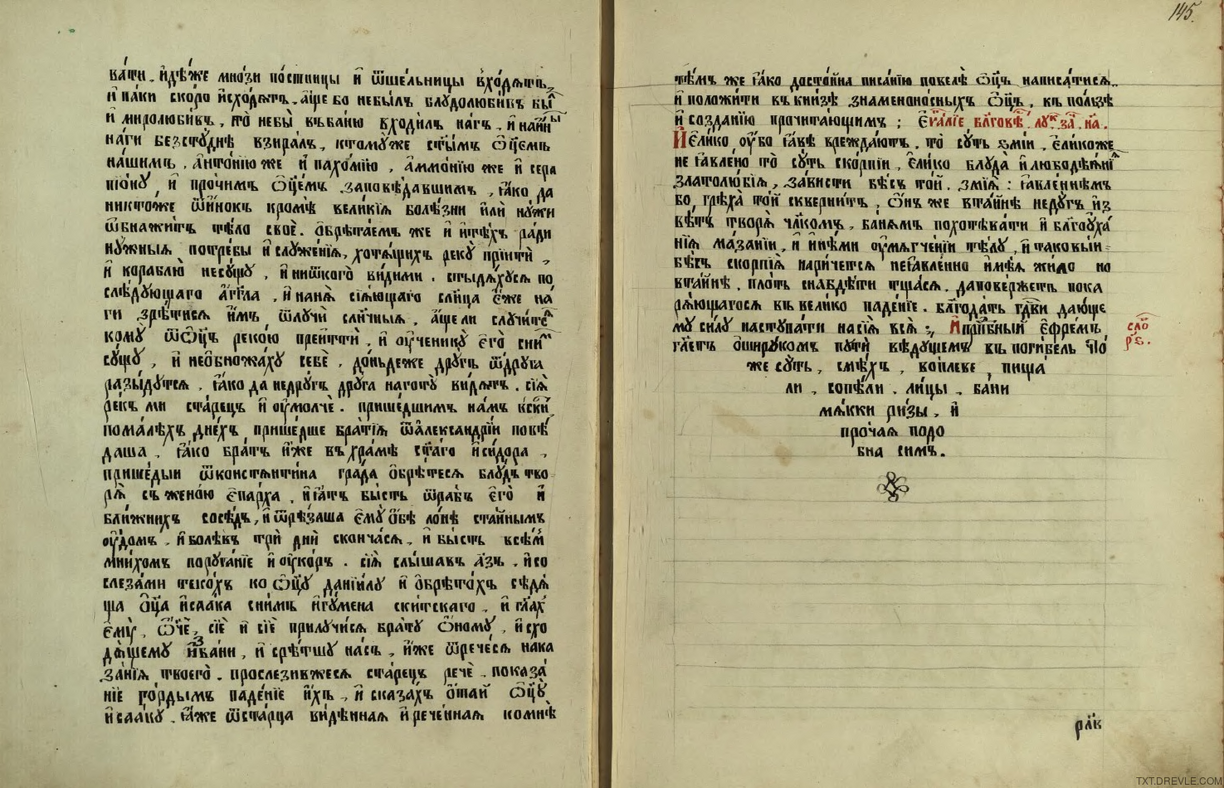 ва́ти. и҆дѣ́же мнози по́стницы и҆ ѿше́льницы вхо́дѧтъ,
и҆ па́ки ско́ро и҆схо́дѧтъ. а҆́ще бо небы́лъ блудолюби́въ бы́
и҆ миролюби́въ, то̀ небы̀ въба́ню входи́лъ на́гъ, и҆ на́ины
на́ги безсту́днѣ взира́лъ, ктомꙋ́же ст҃ы́мъ ѻ҆ц҃е́мъ
на́шимъ, а҆нто́нїю же и҆ пахо́мїю, а҆ммо́нїю же и҆ сера
пїо́нꙋ, и҆ про́чимъ ѻ҆ц҃е́мъ заповѣ́давшимъ, ꙗ҆́ко да
никто́же ѿи́нокъ кромѣ̀ вели́кїѧ болѣ́зни и҆лѝ нꙋ́жи
ѡ҆бнажи́тъ тѣ́ло своѐ. ѡ҆брѣта́ем же и҆ и҆тѣ́хъ ра́ди
нꙋ́жныѧ потре́бы и҆ слꙋже́нїѧ, хотѧ́щихъ рекꙋ̀ прїитѝ
и҆ кораблю̀ несꙋ́щꙋ, и҆ нико́го ви́дими, стыдѧ́хꙋсѧ по
слѣ́дꙋющаго а҆́гг҃ла, и҆ нанѧ̀ сїѧ́ющаго сл҃нца є҆́же на́
ги зрѣ́тисѧ и҆̀мъ ѿлꙋчѝ сл҃нчныѧ, а҆́ще ли слꙋчи́тсѧ
комꙋ̀ ѿѻ҆ц҃ъ реко́ю преиттѝ, и҆ ᲂу҆ченикꙋ̀ є҆го̀ сни́мъ
сꙋ́щꙋ, и҆ необножа́хꙋ себѐ, до́ньдеже дрꙋ́гъ ѿдрꙋ́га
разы́дꙋтсѧ, ꙗ҆́ко да недрꙋ́гъ дрꙋ́га наготꙋ̀ ви́дѧтъ. сїѧ̀
ре́къ ми ста́рецъ и҆ ᲂу҆молчѐ. прише́дшимъ на́мъ вски́
пома́лѣхъ дне́хъ, прише́дше бра́тїѧ ѿа҆леѯандрі́и повѣ́
даша, ꙗ҆́ко бра́тъ и҆́же въхра́мѣ ст҃а́го и҆си́дора,
прише́дыи ѿконстѧнти́на гра́да ѡ҆брѣ́тесѧ блꙋ́дъ тво
рѧ̀ съ жено́ю є҆па́рха, и҆ ꙗ҆́тъ бы́сть ѿра́бъ є҆гѡ̀ и҆
бли́жнихъ сосѣ́дъ, и҆ ѿрѣ́заша є҆мꙋ̀ ѻ҆́бѣ ло́нѣ ста́йнымъ
ᲂу҆́домъ, и҆ болѣ́въ трѝ днѝ сконча́сѧ, и҆ бы́сть всѣ́мъ
мни́хомъ порꙋга́нїе и҆ ᲂу҆ко́ръ. сїѧ̀ слы́шавъ а҆́зъ, и҆ со
слеза́ми теко́хъ ко ѻ҆ц҃ꙋ̀ данїи́лꙋ и҆ ѡ҆брѣто́хъ сѣдѧ́
ща ѻ҆ц҃а̀ и҆саа́ка сни́мъ и҆гꙋ́мена ски́тскаго, и҆ гл҃ах
є҆мꙋ̀, ѻ҆́ч҃е, сїѐ и҆ сїѐ прилꙋчи́сѧ бра́тꙋ ѻ҆́номꙋ, и҆схо
дѧ́щемꙋ и҆зба́ни, и҆ срѣ́тшꙋ на́съ, и҆́же ѿрече́сѧ нака
за́нїѧ твоегѡ̀. прослези́вжесѧ ста́рецъ речѐ. показа́
нїе го́рдымъ паде́нїе и҆́хъ, и҆ сказа́хъ ѻ҆та́и ѻ҆ц҃ꙋ̀
и҆саа́кꙋ. ꙗ҆́же ѿста́рца ви́дѣнная и҆ рече́нная комнѣ̀
145.
тѣ́мъ же ꙗ҆́ко досто́йна писа́нїю повелѣ̀ ѻ҆ц҃ъ написа́тисѧ.
и҆ положи́ти въ кни́зѣ знаменоно́сныхъ ѻ҆ц҃ъ, въ по́льзꙋ
и҆ созда́нїю прочита́ющимъ ; є҆ѵⷢ҇а́лїе бл҃говѣ́, лꙋ́к, за, на.
И҆ є҆ли́ко ᲂу҆́бо ꙗ҆́вѣ врежда́ютъ. то̀ сꙋ́ть ѕмїи. є҆ли́коже
не ꙗ҆вле́но то̀ сꙋ́ть скорпі́и, є҆ли́ко блꙋ́да и҆ любодѣѧ́нї
златолю́бїѧ, за́висти бѣ́съ то́й. ѕмїѧ̀ : ꙗ҆вле́ннѣмъ
бо грѣха̀ то́й скверни́тъ, ѻ҆́нъ же вта́йнѣ недꙋ́гъ и҆з
вѣ́тъ творѧ̀ чл҃комъ, ба́нѧмъ похотѣва́ти и҆ бл҃гоꙋха́
нїѧ ма́занїи, и҆ ине́ми ᲂу҆мѧгче́нїи тѣ́лꙋ, и҆ таковы́и
бѣ́съ скорпі́ѧ нарича́етсѧ неꙗвле́нно и҆мѣ́ѧ жи́ло но
вта́йнѣ. пло́ть снабдѣ́ти тща́сѧ. даповерже́тъ пока
рѧ́ющагосѧ въ вели́ко паде́нїе. благода́ть гд҃ви даю́ще
мꙋ си́лꙋ настꙋпа́ти насїѧ̀ всѧ̀ ; И҆ прп҃бный є҆фре́мъ
сло́
рє҃.
гл҃етъ ѻ҆широ́комъ пꙋтѝ вѣдꙋ́щемъ въ поги́бель что̀
же сꙋ́ть, смѣ́хъ, ко́плеве, пища
ли, сопѣ́ли. ли́цы. ба́ни
мѧ́кки ри́зы, и҆
про́чаѧ подо́
бна си́мъ.
рл҃к
TXT.DREVLE.COM